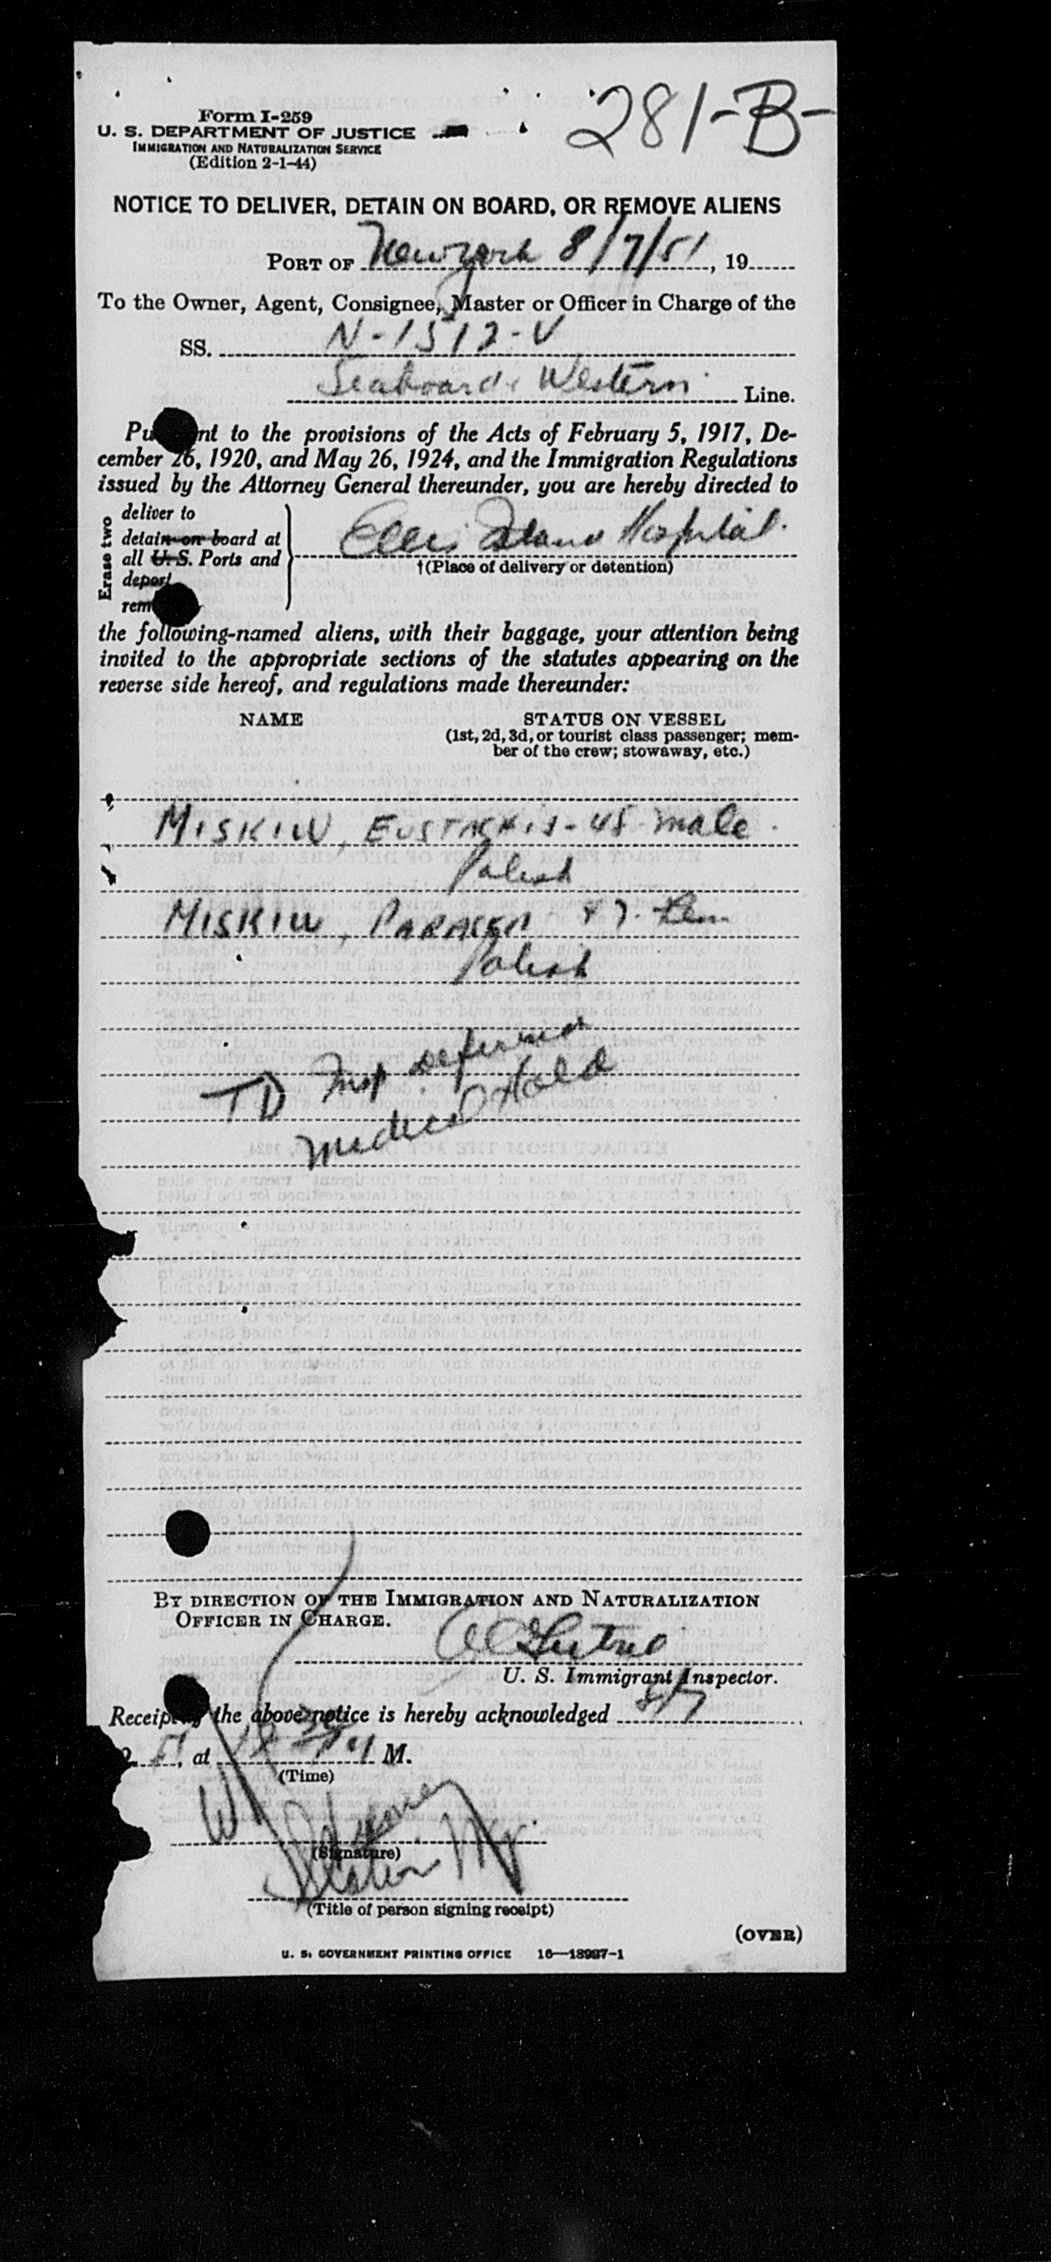 281-B-
Form I-259
U. S. DEPARTMENT OF JUSTICE
IMMIGRATION AND NATURALIZATION SERVICE
(Edition 2-1-44)
NOTICE TO DELIVER, DETAIN ON BOARD, OR REMOVE ALIENS
PORT OF New York 8/7/51, 19
To the Owner, Agent, Consignee, Master or Officer in Charge of the
SS. N-1512-V
Seaboard & Western Line.
Pu nt to the provisions of the Acts of February 5, 1917, De-
cember 26, 1920, and May 26, 1924, and the Immigration Regulations
issued by the Attorney General thereunder, you are hereby directed to
Erase two
deliver to
detain on board at
all U.S. Ports and
deport
rem
Ellis Island Hospital.
†(Place of delivery or detention)
the following-named aliens, with their baggage, your attention being
invited to the appropriate sections of the statutes appearing on the
reverse side hereof, and regulations made thereunder:
NAME STATUS ON VESSEL
(1st, 2d, 3d, or tourist class passenger; mem-
ber of the crew; stowaway, etc.)
MISKIW, EUSTACHIJ - 48 - male
Polish
MISKIW, 47. Fem
Polish
TD Insp deferred
Medical Hold
BY DIRECTION OF THE IMMIGRATION AND NATURALIZATION
OFFICER IN CHARGE.
U. S. Immigrant Inspector.
Receipt of the above notice is hereby acknowledged 8/7
51, at M.
(Time)
(Signature)
Station Mgr.
(Title of person signing receipt)
(OVER)
U. S. GOVERNMENT PRINTING OFFICE 16—18987-1